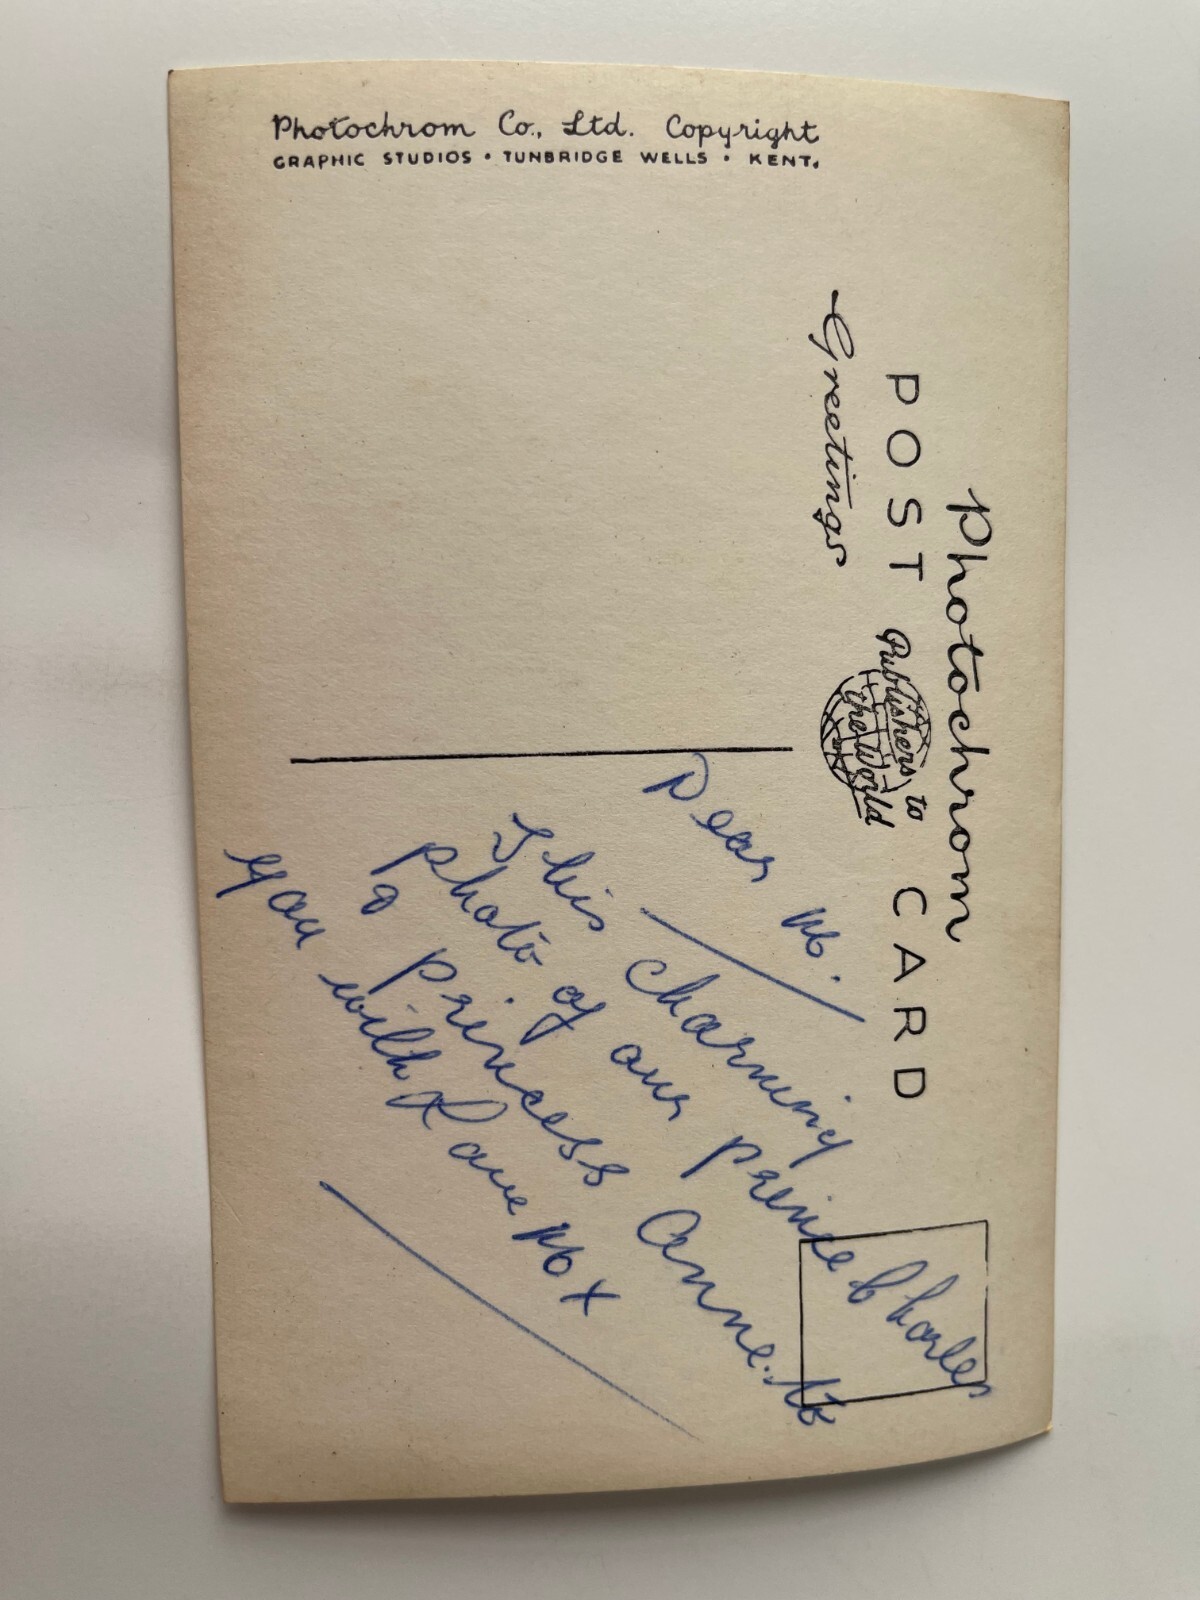 Photochrom
POST CARD
Publishers to
the World
Greetings
Photochrom Co., Ltd. Copyright
GRAPHIC STUDIOS • TUNBRIDGE WELLS • KENT.
Dear
This charming
photo of our prince Charles
& princess Anne. to
you with Love x